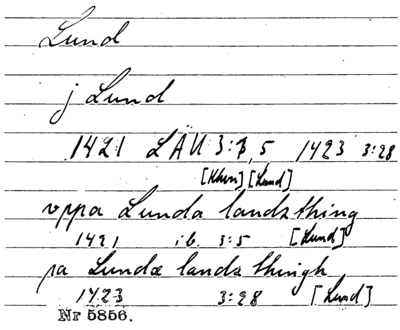 Lund
j Lund
1421 LÄU 3:3, 5 1423 3:28
[Khvn] [Lund]
vppa Lunda landzthing
1421 ib. 3:5 [Lund]
pa Lundæ landz thingh
1423 3:28 [Lund]
Nr 5856.